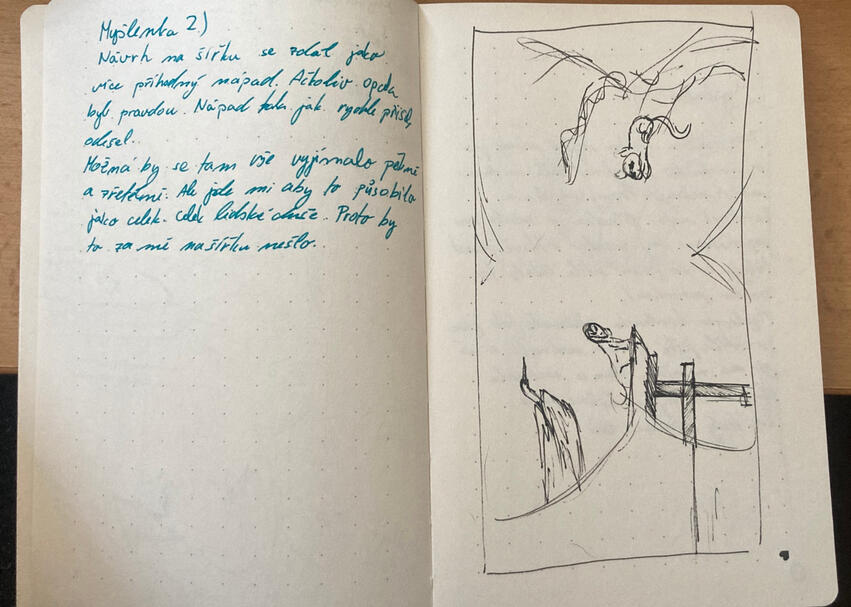 Myšlenka 2.)
Návrh na šířku se zdál jako
více příhodný nápad. Ačkoliv opak
byl pravdou. Nápad tak jak rychle přišel,
odešel.
Možná by se tam vše vyjímalo pěkně
a zřetelně. Ale jde mi aby to působilo
jako celek. Celek lidské duše. Proto by
to za mě na šířku nešlo.